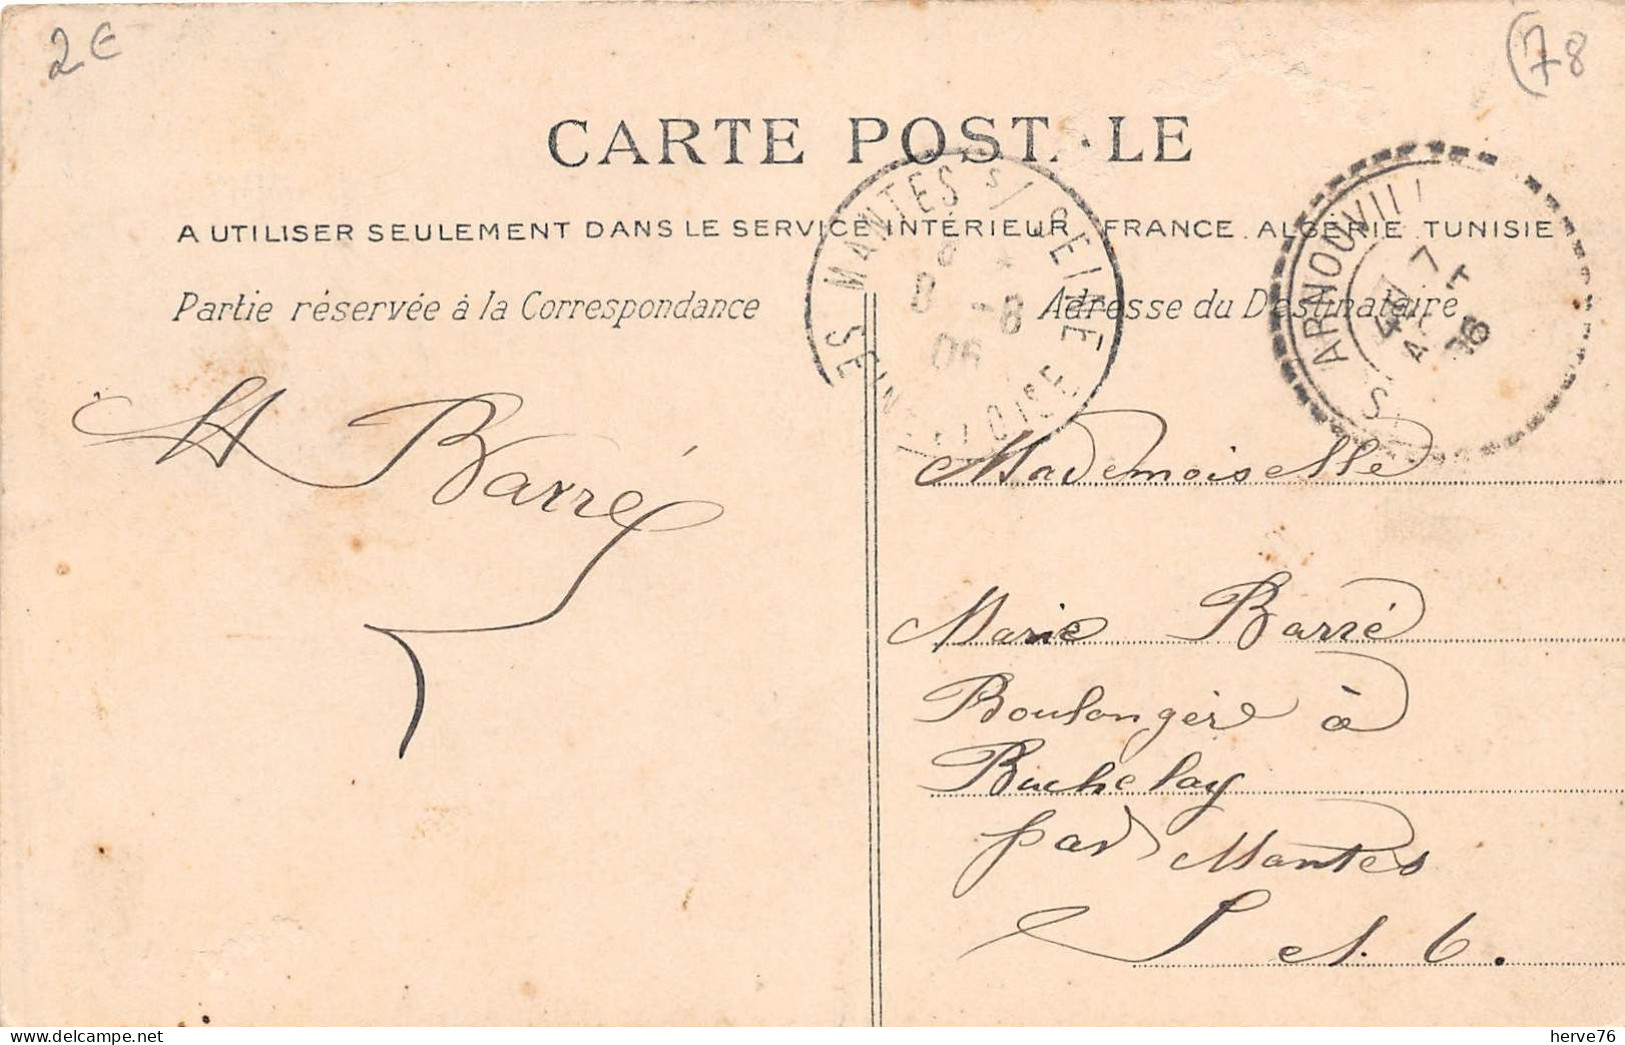 2€
(78
CARTE POST. LE
A UTILISER SEULEMENT DANS LE SERVICE INTÉRIEUR FRANCE. ALGÉRIE. TUNISIE
Partie réservée à la Correspondance
Adresse du Destinataire
MANTES S/ SEINE
8 -8
06
SEINE OISE
ARNOUVILL
7
06
Barré
Mademoiselle
Marie Barré
Boulangère à
Buchelay
par Mantes
S et O.
Delcampe.net
herve76